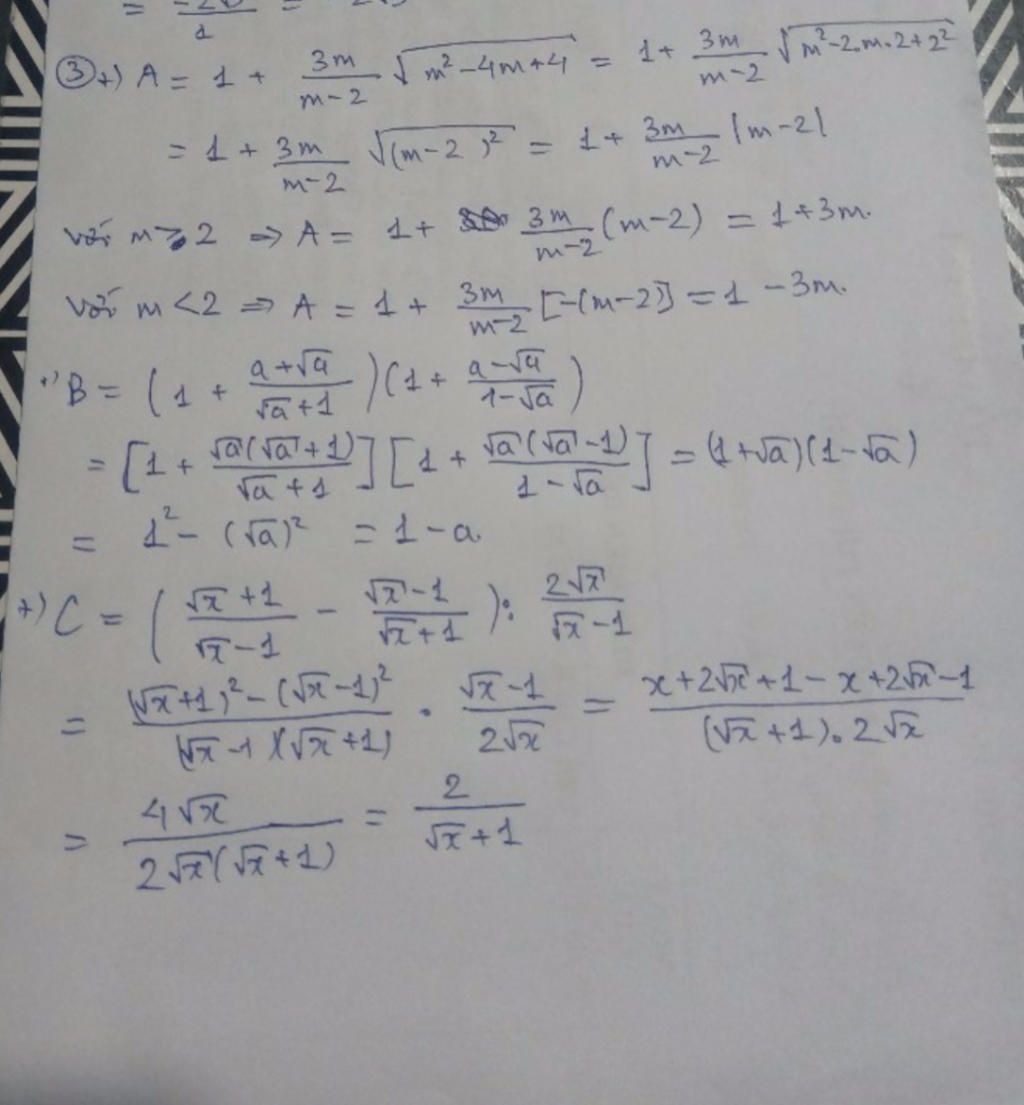 = -2√
1
③ +) A = 1 + 3m/(m-2) √(m²-4m+4) = 1 + 3m/(m-2) √(m²-2.m.2+2²)
= 1 + 3m/(m-2) √((m-2)²) = 1 + 3m/(m-2) |m-2|
với m > 2 ⇒ A = 1 + 3m/(m-2) (m-2) = 1+3m.
với m < 2 ⇒ A = 1 + 3m/(m-2) [-(m-2)] = 1 - 3m.
+) B = (1 + (a+√a)/(√a+1)) (1 + (a-√a)/(1-√a))
= [1 + √a(√a+1)/(√a+1)] [1 + √a(√a-1)/(1-√a)] = (1+√a)(1-√a)
= 1² - (√a)² = 1 - a.
+) C = ((√x+1)/(√x-1) - (√x-1)/(√x+1)) : 2√x/(√x-1)
= ((√x+1)² - (√x-1)²)/((√x-1)(√x+1)) . (√x-1)/(2√x) = (x+2√x+1-x+2√x-1)/((√x+1).2√x)
= 4√x/(2√x(√x+1)) = 2/(√x+1)